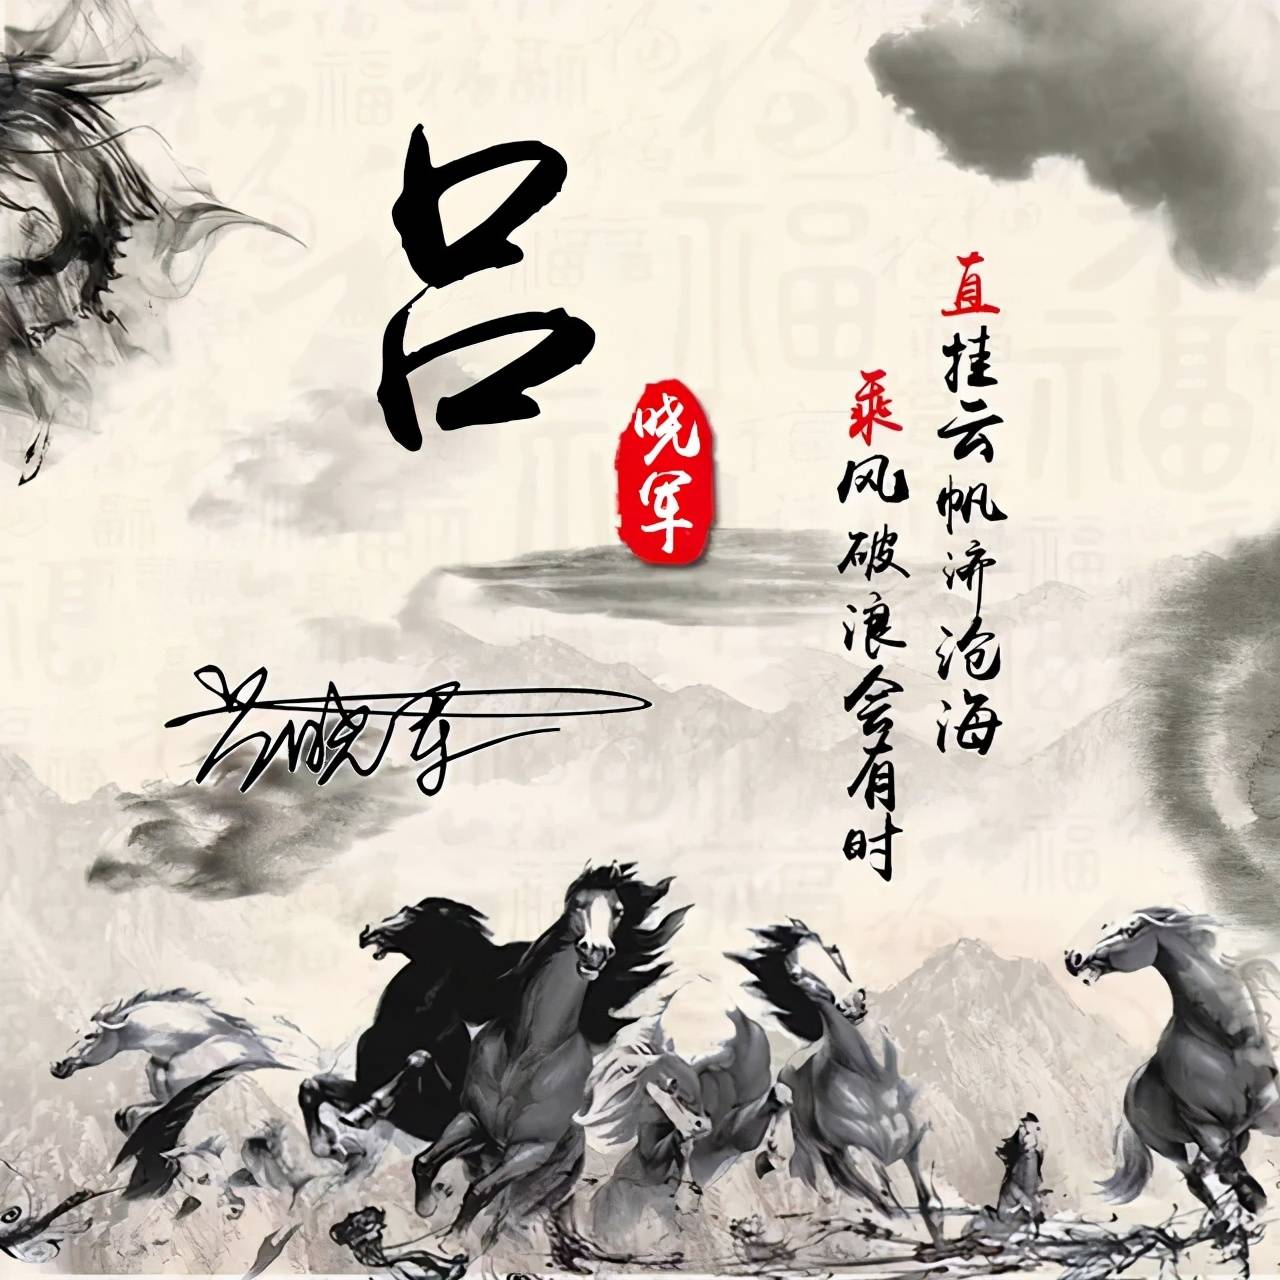 吕
晓军
直挂云帆济沧海
乘风破浪会有时
吕晓军
福